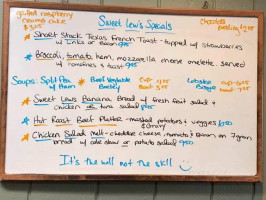 grilled raspberry
crumb cake
Sweet Lew's Specials
chocolate
pudding
* Short Stack Texas French Toast - topped w/ strawberries
* Broccoli, tomato, ham, mozzarella cheese omelette, served
w/ homefries & toast
Soups: Split Pea
w/ Ham
* Beef Vegetable
Barley
Lobster
Bisque
* Sweet Lews Banana Bread w/ fresh fruit salad &
chicken or tuna salad
* Hot Roast Beef Platter - mashed potatoes & veggies
& Gravy
* Chicken Salad melt - cheddar cheese, tomato & Bacon on 7 grain
bread w/ cole slaw or potato salad
It's the will not the skill